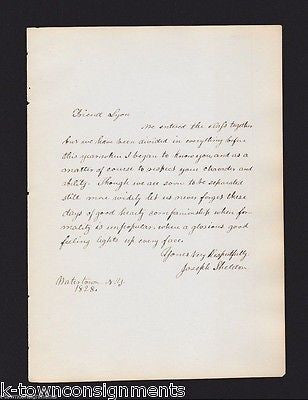 Friend Lyon
We entered the class together
but we have been divided in everything before
this year when I began to know you, and as a
matter of course to respect your character and
ability. Though we are soon to be separated
still more widely let us never forget these
days of good hearty companionship when for-
mality is unpopular when a glorious good
feeling lights up every face.
Yours Very Respectfully
Joseph Sheldon
Watertown N.Y.
k-townconsignments